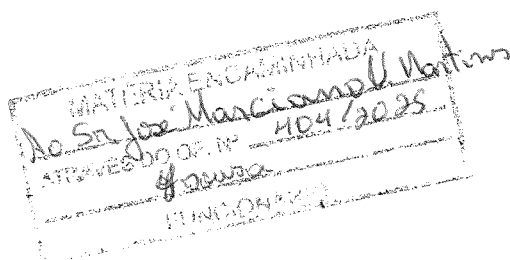 MATÉRIA ENCAMINHADA
Ao Sr José Marciano V Martins
ATRAVÉS DO OF. Nº 404/2025
FUNCIONÁRIO